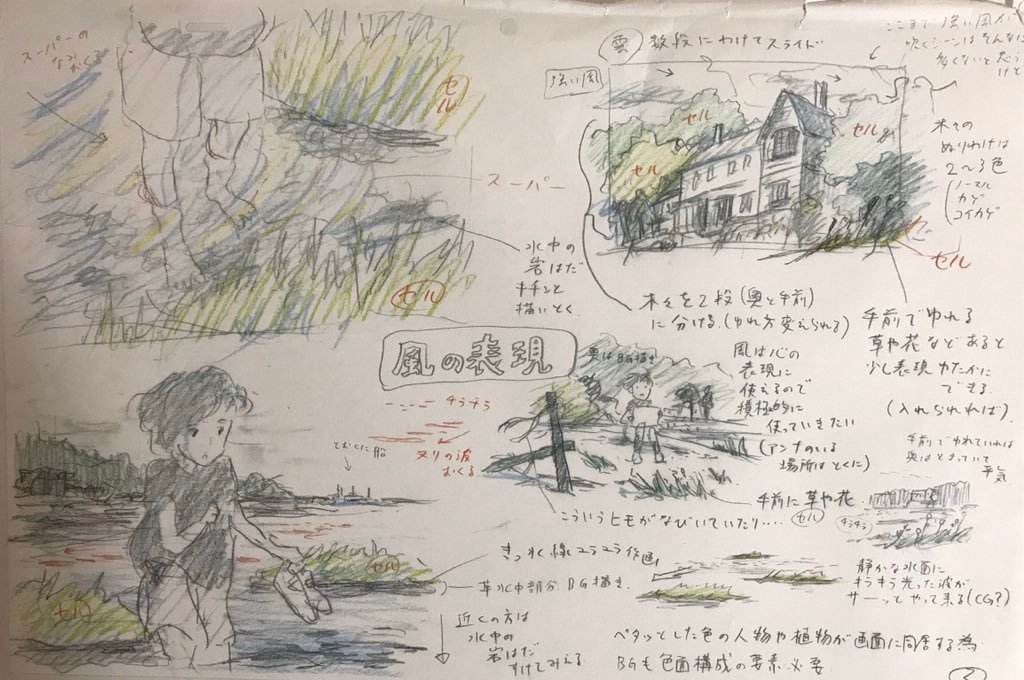 スーパーの
なみ
おくる
セル
スーパー
水中の
岩はだ
キチンと
描いとく
セル
雲 数段にわけてスライド
強い風
ここまで強い風が
吹くシーンはそんなに
多くないと思う
けど
セル
セル
セル
木々の
ぬりわけは
2〜3色
ノーマル
カゲ
コイカゲ
セル
木々を2段(奥と手前)
に分ける。(ゆれ方変えられる)
手前でゆれる
草や花などあると
少し表現ゆたかに
できる
(入れられれば)
手前でゆれていれば
奥はとまっていて
平気
風の表現
奥はBG描き
風は心の
表現に
使えるので
積極的に
使っていきたい
(アンナのいる
場所はとくに)
手前に草や花
セル
こういうヒモがなびいていたり....
チラチラ
ヌリの波
おくる
とおくに船
セル
セル
きっ水線ユラユラ作画
草水中部分BG描き
近くの方は
水中の
岩はだ
すけてみえる
チラチラ
静かな水面に
キラキラ光った波が
サーッとやって来る(CG?)
ペタッとした色の人物や植物が画面に同居する為
BGも色面構成の要素必要
2